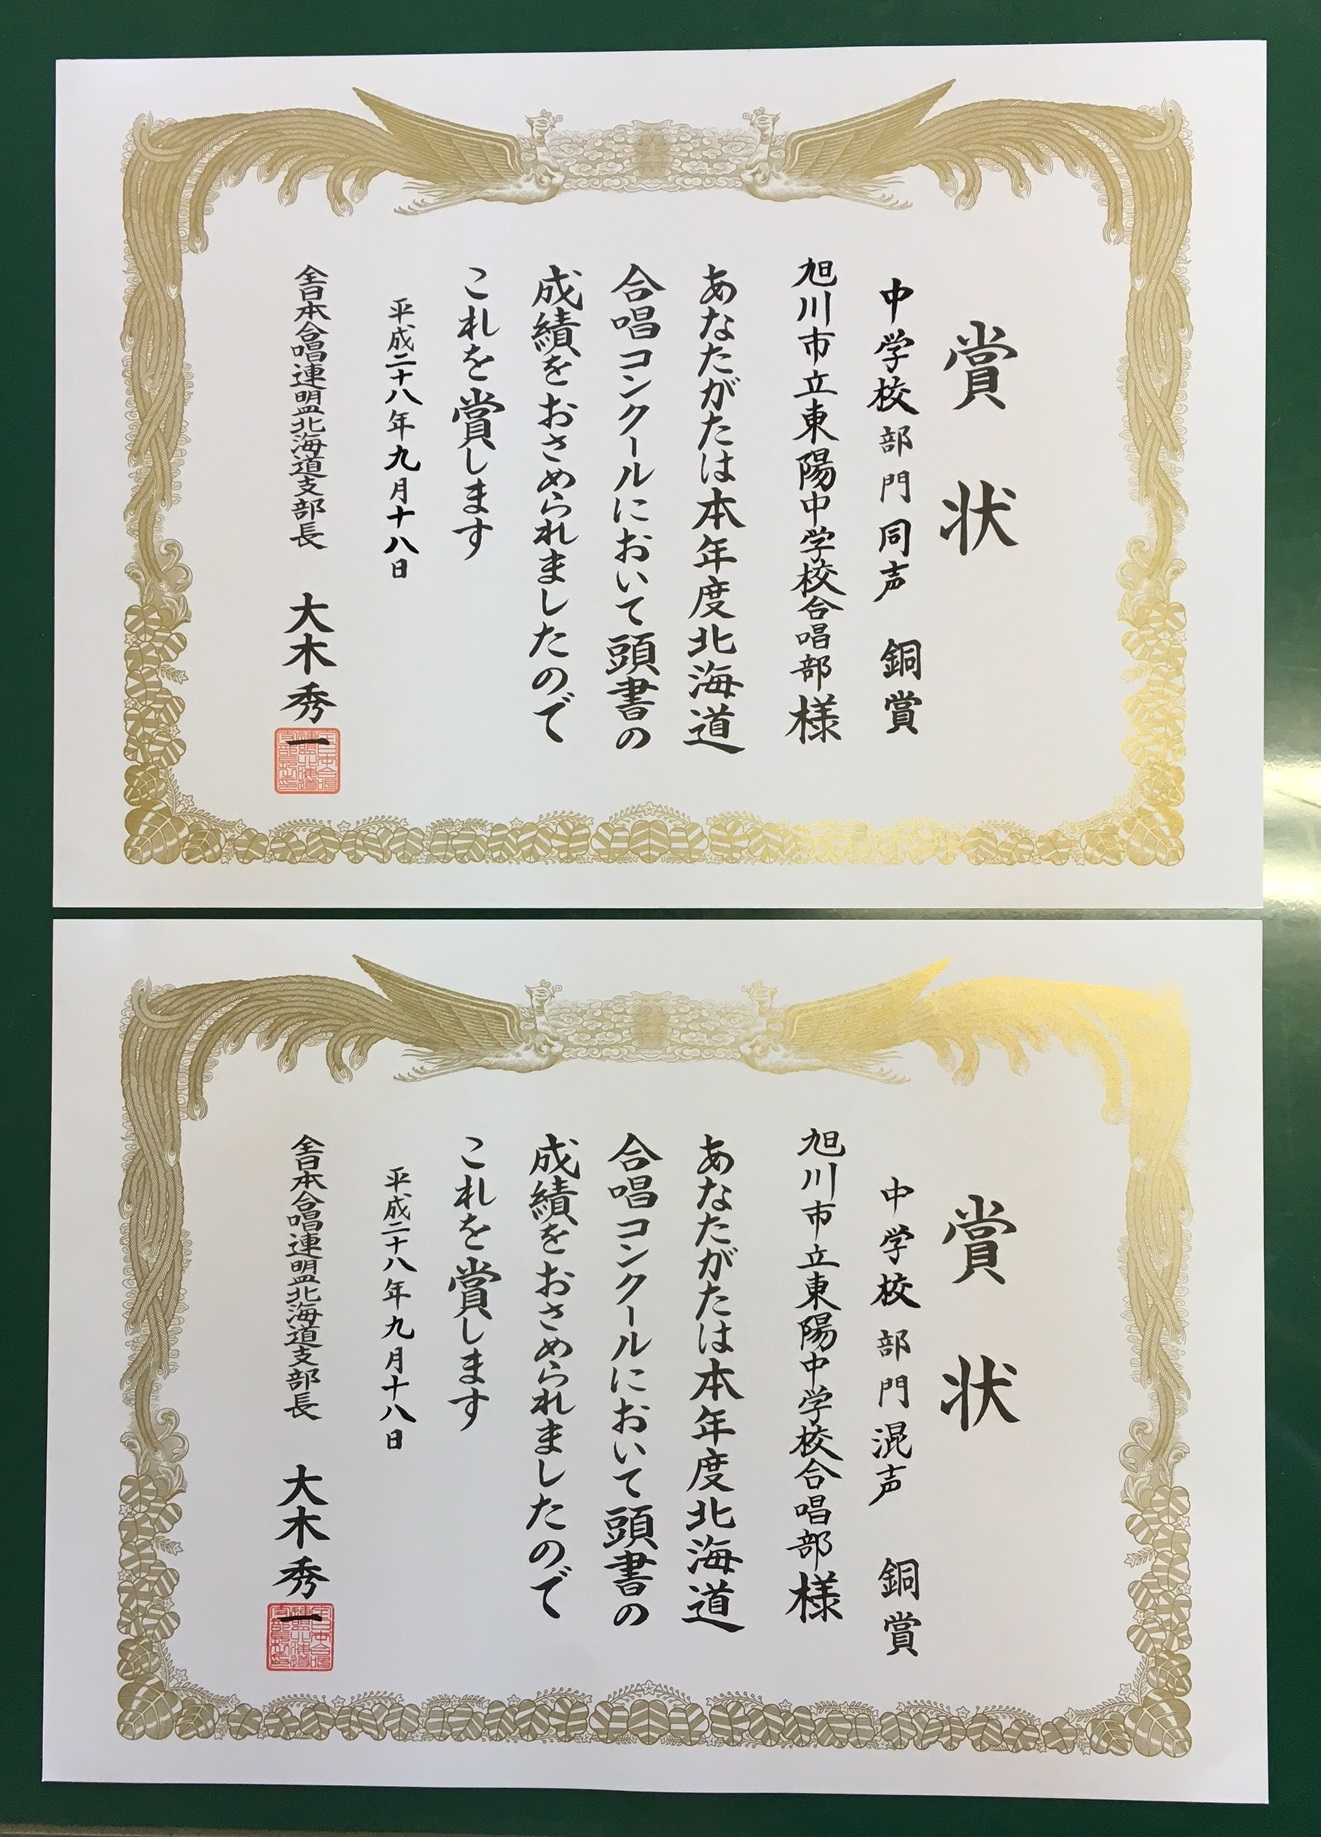 賞状
中学校部門同声 銅賞
旭川市立東陽中学校合唱部様
あなたがたは本年度北海道
合唱コンクールにおいて頭書の
成績をおさめられましたので
これを賞します
平成二十八年九月十八日
全日本合唱連盟北海道支部長 大木秀一
賞状
中学校部門混声 銅賞
旭川市立東陽中学校合唱部様
あなたがたは本年度北海道
合唱コンクールにおいて頭書の
成績をおさめられましたので
これを賞します
平成二十八年九月十八日
全日本合唱連盟北海道支部長 大木秀一